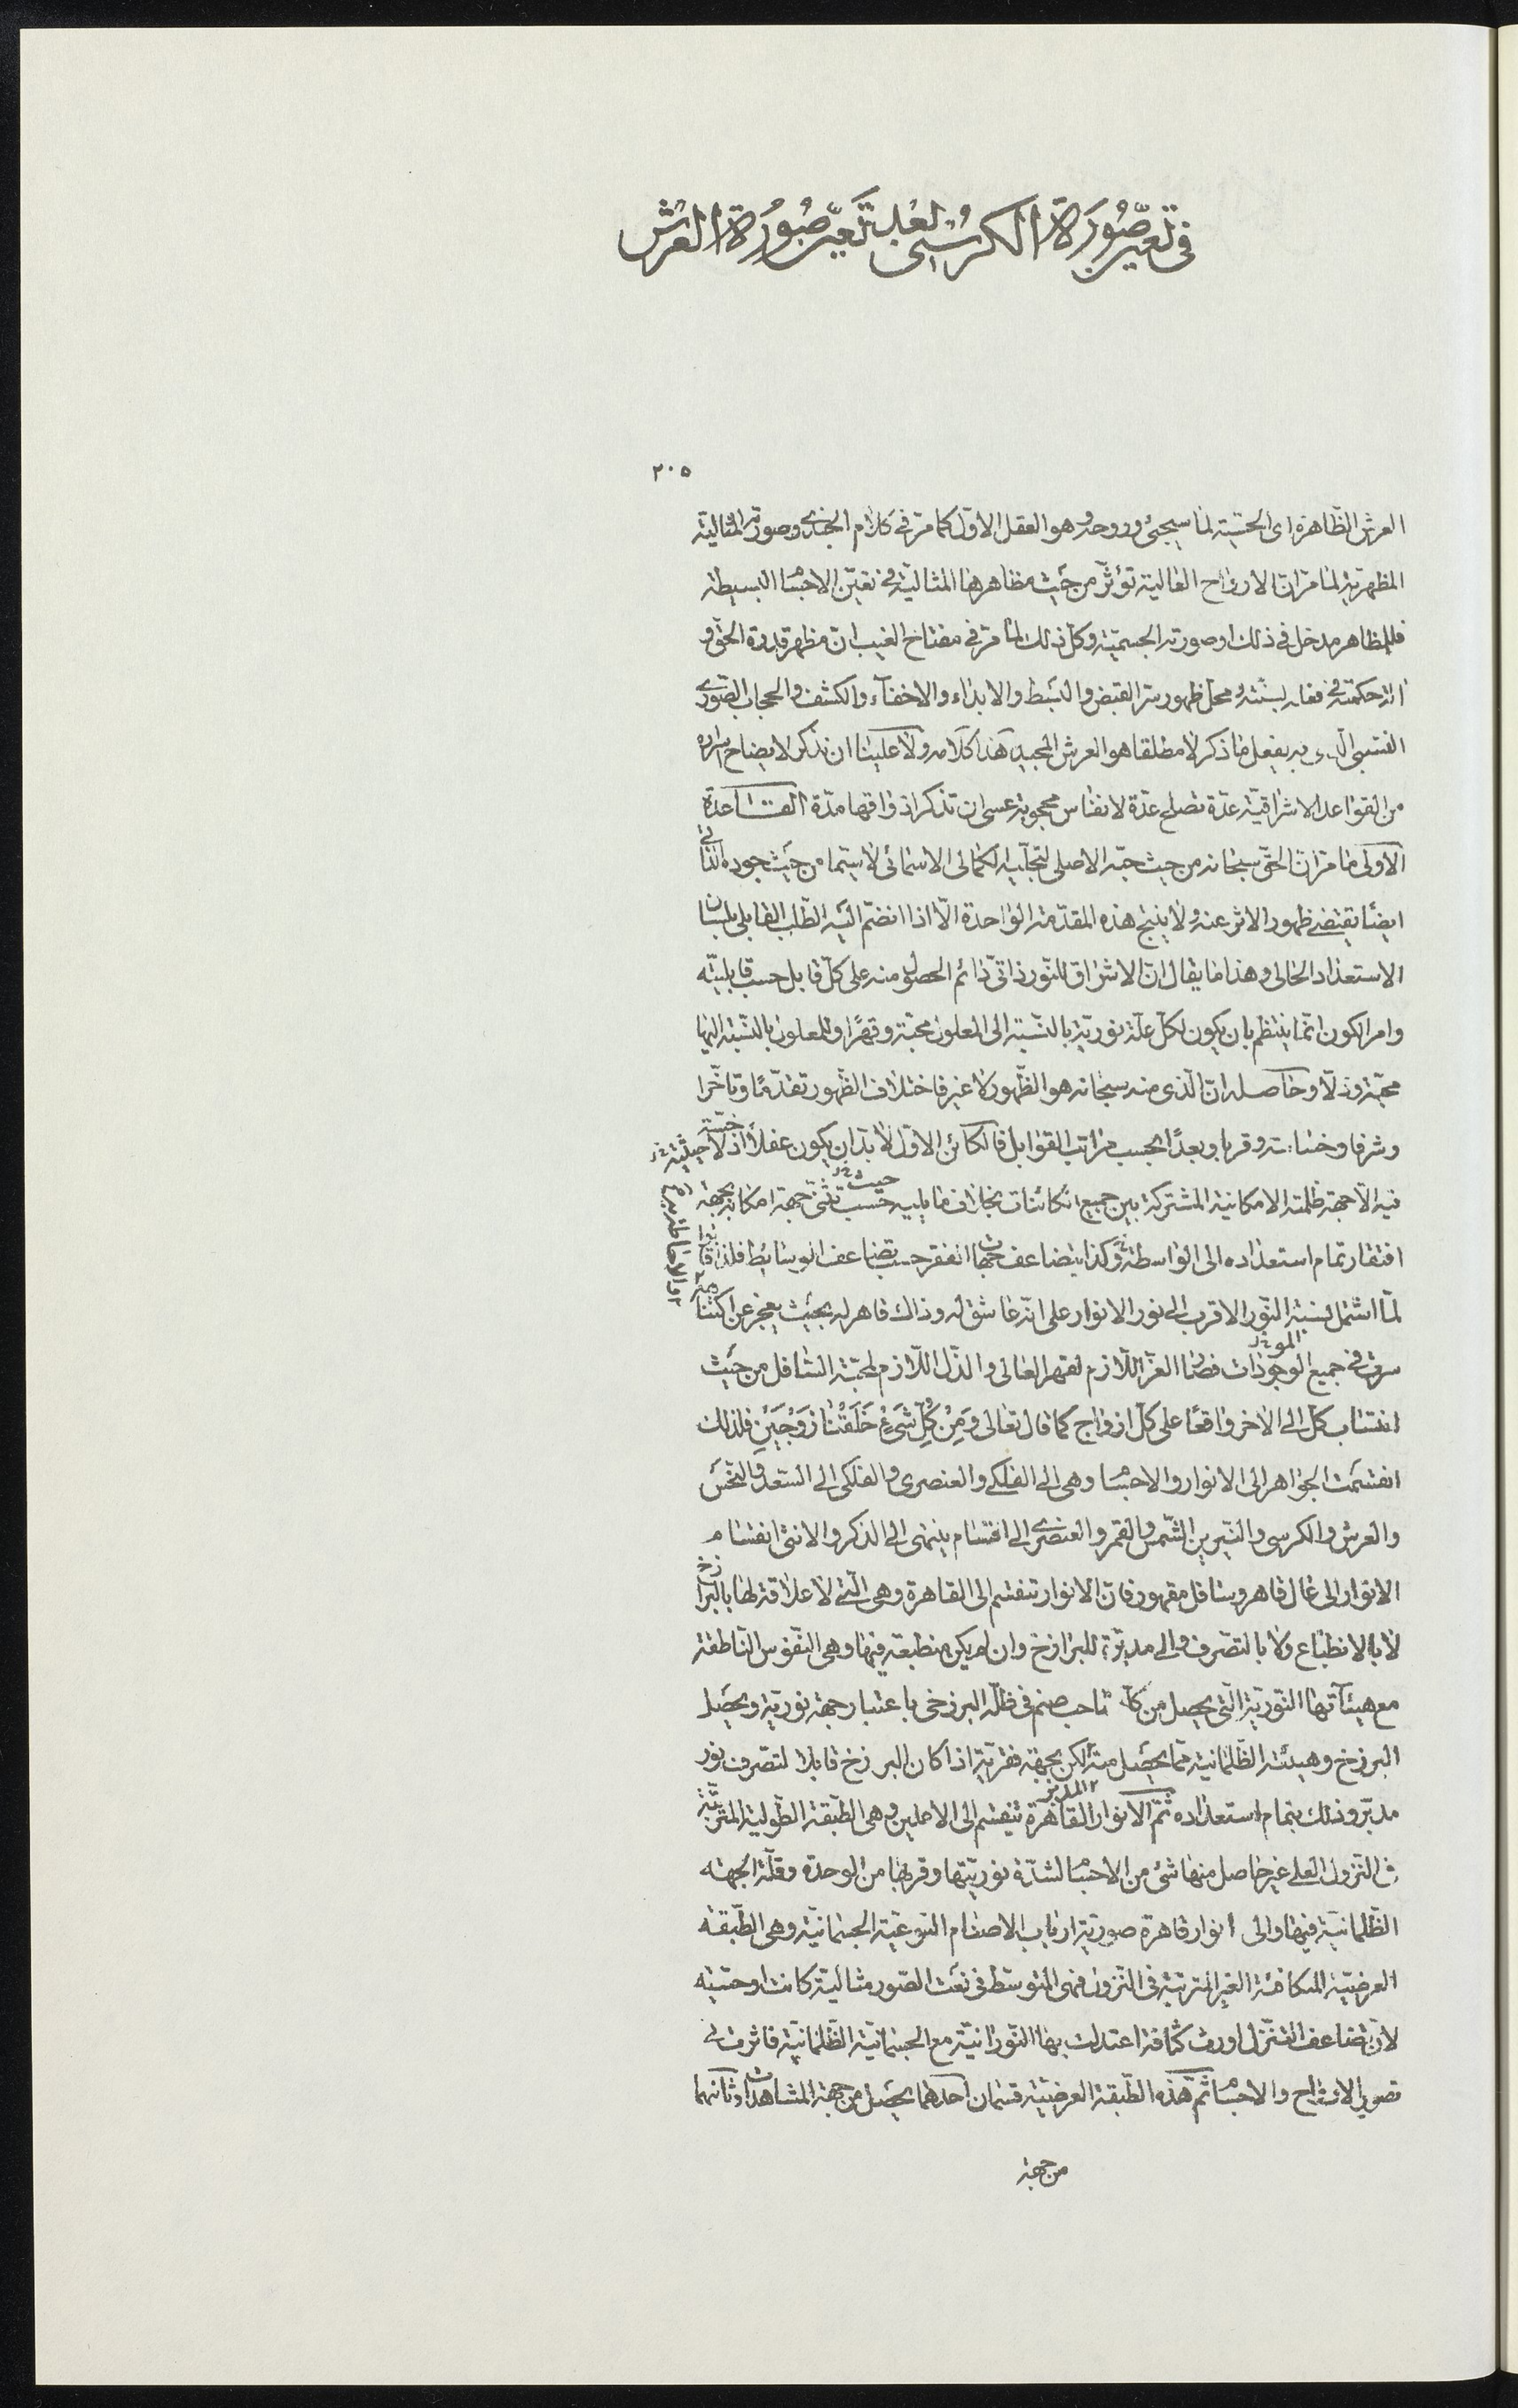 في تعين صورة الكرسي بعد تعين صورة العرش
٢٠٥
العرش الظاهرة اى الحسّية لما سيجئ وروحه وهو العقل الاوّل كما مرّ في كلام الجندى وصورته المثالية
المظهريّة لما مرّ ان الارواح العالية تؤثّر من حيث مظاهرها المثاليّة في تعيّن الاجسام البسيطة
فللمظاهر مدخل في ذلك او صورته الجسميّة وكل ذلك لما مرّ في مفتاح الغيب انّ مظهر قدرة الحق و
حكمته في فعله بسنّته ومحلّ ظهور سرّ القبض والبسط والابداء والاخفاء والكشف والحجاب الصّورى
به يفعل ما ذكر لا مطلقا هو العرش المجيد هذا كلامه ولا علينا ان نذكر لايضاح اسراره
من القواعد الاشراقيّة عدّة تصلح عدّة لانفاس محجوبة عسى ان تذكر اذواقها مدّة القاعدة
الاولى ما مرّ انّ الحقّ سبحانه من حيث حبّه الاصلى لتجلّيه الكمالى الاسمائى لا سيّما من حيث جوده الذّاتى
ايضًا يقتضى ظهور الاثر عنه ولا ينتج هذه المقدّمة الواحدة الّا اذا انضمّ اليه الطّلب القابلى بلسان
الاستعداد الحالى وهذا ما يقال انّ الاشراق للنّور ذاتى دائم الحصول منه على كلّ قابل حسب قابليّته
وامر الكون انّما ينتظم بان يكون لكلّ علّة نوريّة بالنّسبة الى المعلول محبّة وقهرًا وللمعلول بالنّسبة اليها
محبّة وذلّا وحاصله انّ الّذى منه سبحانه هو الظّهور لا غير فاختلاف الظّهور تقدّمًا وتأخّرا
وشرفا وخساسة وقربا وبعدًا بحسب مراتب القوابل فالكائن الاوّل لا بدّ ان يكون عقلًا اذ لا حيثية
فيه الّا جهة ظلمته الامكانية المشتركة بين جميع الكائنات بخلاف ما يليه حسب تثنّى جهة امكانه بجهة
افتقار تمام استعداده الى الواسطة وكذا يتضاعف جهات الفقر حسب تضاعف الوسائط فلذا قالوا
لمّا اشتمل نسبة النّور الاقرب الى نور الانوار على انّه عاشق له وذاك قاهر له بحيث يعجز عن اكتناهه
سرى في جميع الموجودات فصار العزّ اللّازم لقهر العالى والذّل اللّازم لمحبّة السّافل من حيث
انتساب كلّ الى الاخر واقعًا على كلّ ازواج كما قال تعالى وَمِنْ كُلِّ شَىْءٍ خَلَقْنَا زَوْجَيْنِ فلذلك
انقسمت الجواهر الى الانوار والاجسام وهى الى الفلكى والعنصرى والفلكى الى السّعد والنّحس
والعرش والكرسى والنّيرين الشّمس والقمر والعنصرى الى اقسام ينتهى الى الذكر والانثى انقسام
الانوار الى عال قاهر وسافل مقهور فان الانوار تنقسم الى القاهرة وهى الّتى لا علاقة لها بالبرازخ
لا بالانطباع ولا بالتصرف والى مدبّرة للبرازخ وان لم يكن منطبعة فيها وهى النّفوس النّاطقة
مع هيئآتها النّوريّة الّتى يحصل من كل صاحب صنم في ظلّه البرزخى باعتبار جهة نوريّة ويحصل
البرزخ وهيئته الظّلمانية ممّا يحصل منه لكن بجهة فقريّة اذا كان البرزخ قابلا لتصرف نور
مدبّر وذلك بتمام استعداده ثمّ الانوار القاهرة تنقسم الى الاعلين وهى الطّبقة الطّولية المترتّبة
في النّزول العلى غير حاصل منها شئ من الاجسام لشدّة نوريّتها وقربها من الوحدة وقلّة الجهة
الظّلمانيّة فيها والى انوار قاهرة صوريّة ارباب الاصنام النوعيّة الجسمانيّة وهى الطّبقة
العرضيّة المتكافئة الغير المترتبة في النّزول فهى المتوسّط في نعت الصّور مثاليّة كانت او حسّية
لانّ تضاعف التنزّل اورث كثافة اعتدلت بها النّورانيّة مع الجسمانيّة الظّلمانيّة فاثرت في
تصوير الاشباح والاجسام ثمّ هذه الطّبقة العرضيّة قسمان احدهما يحصل من جهة المشاهدات وثانيهما
من جهة